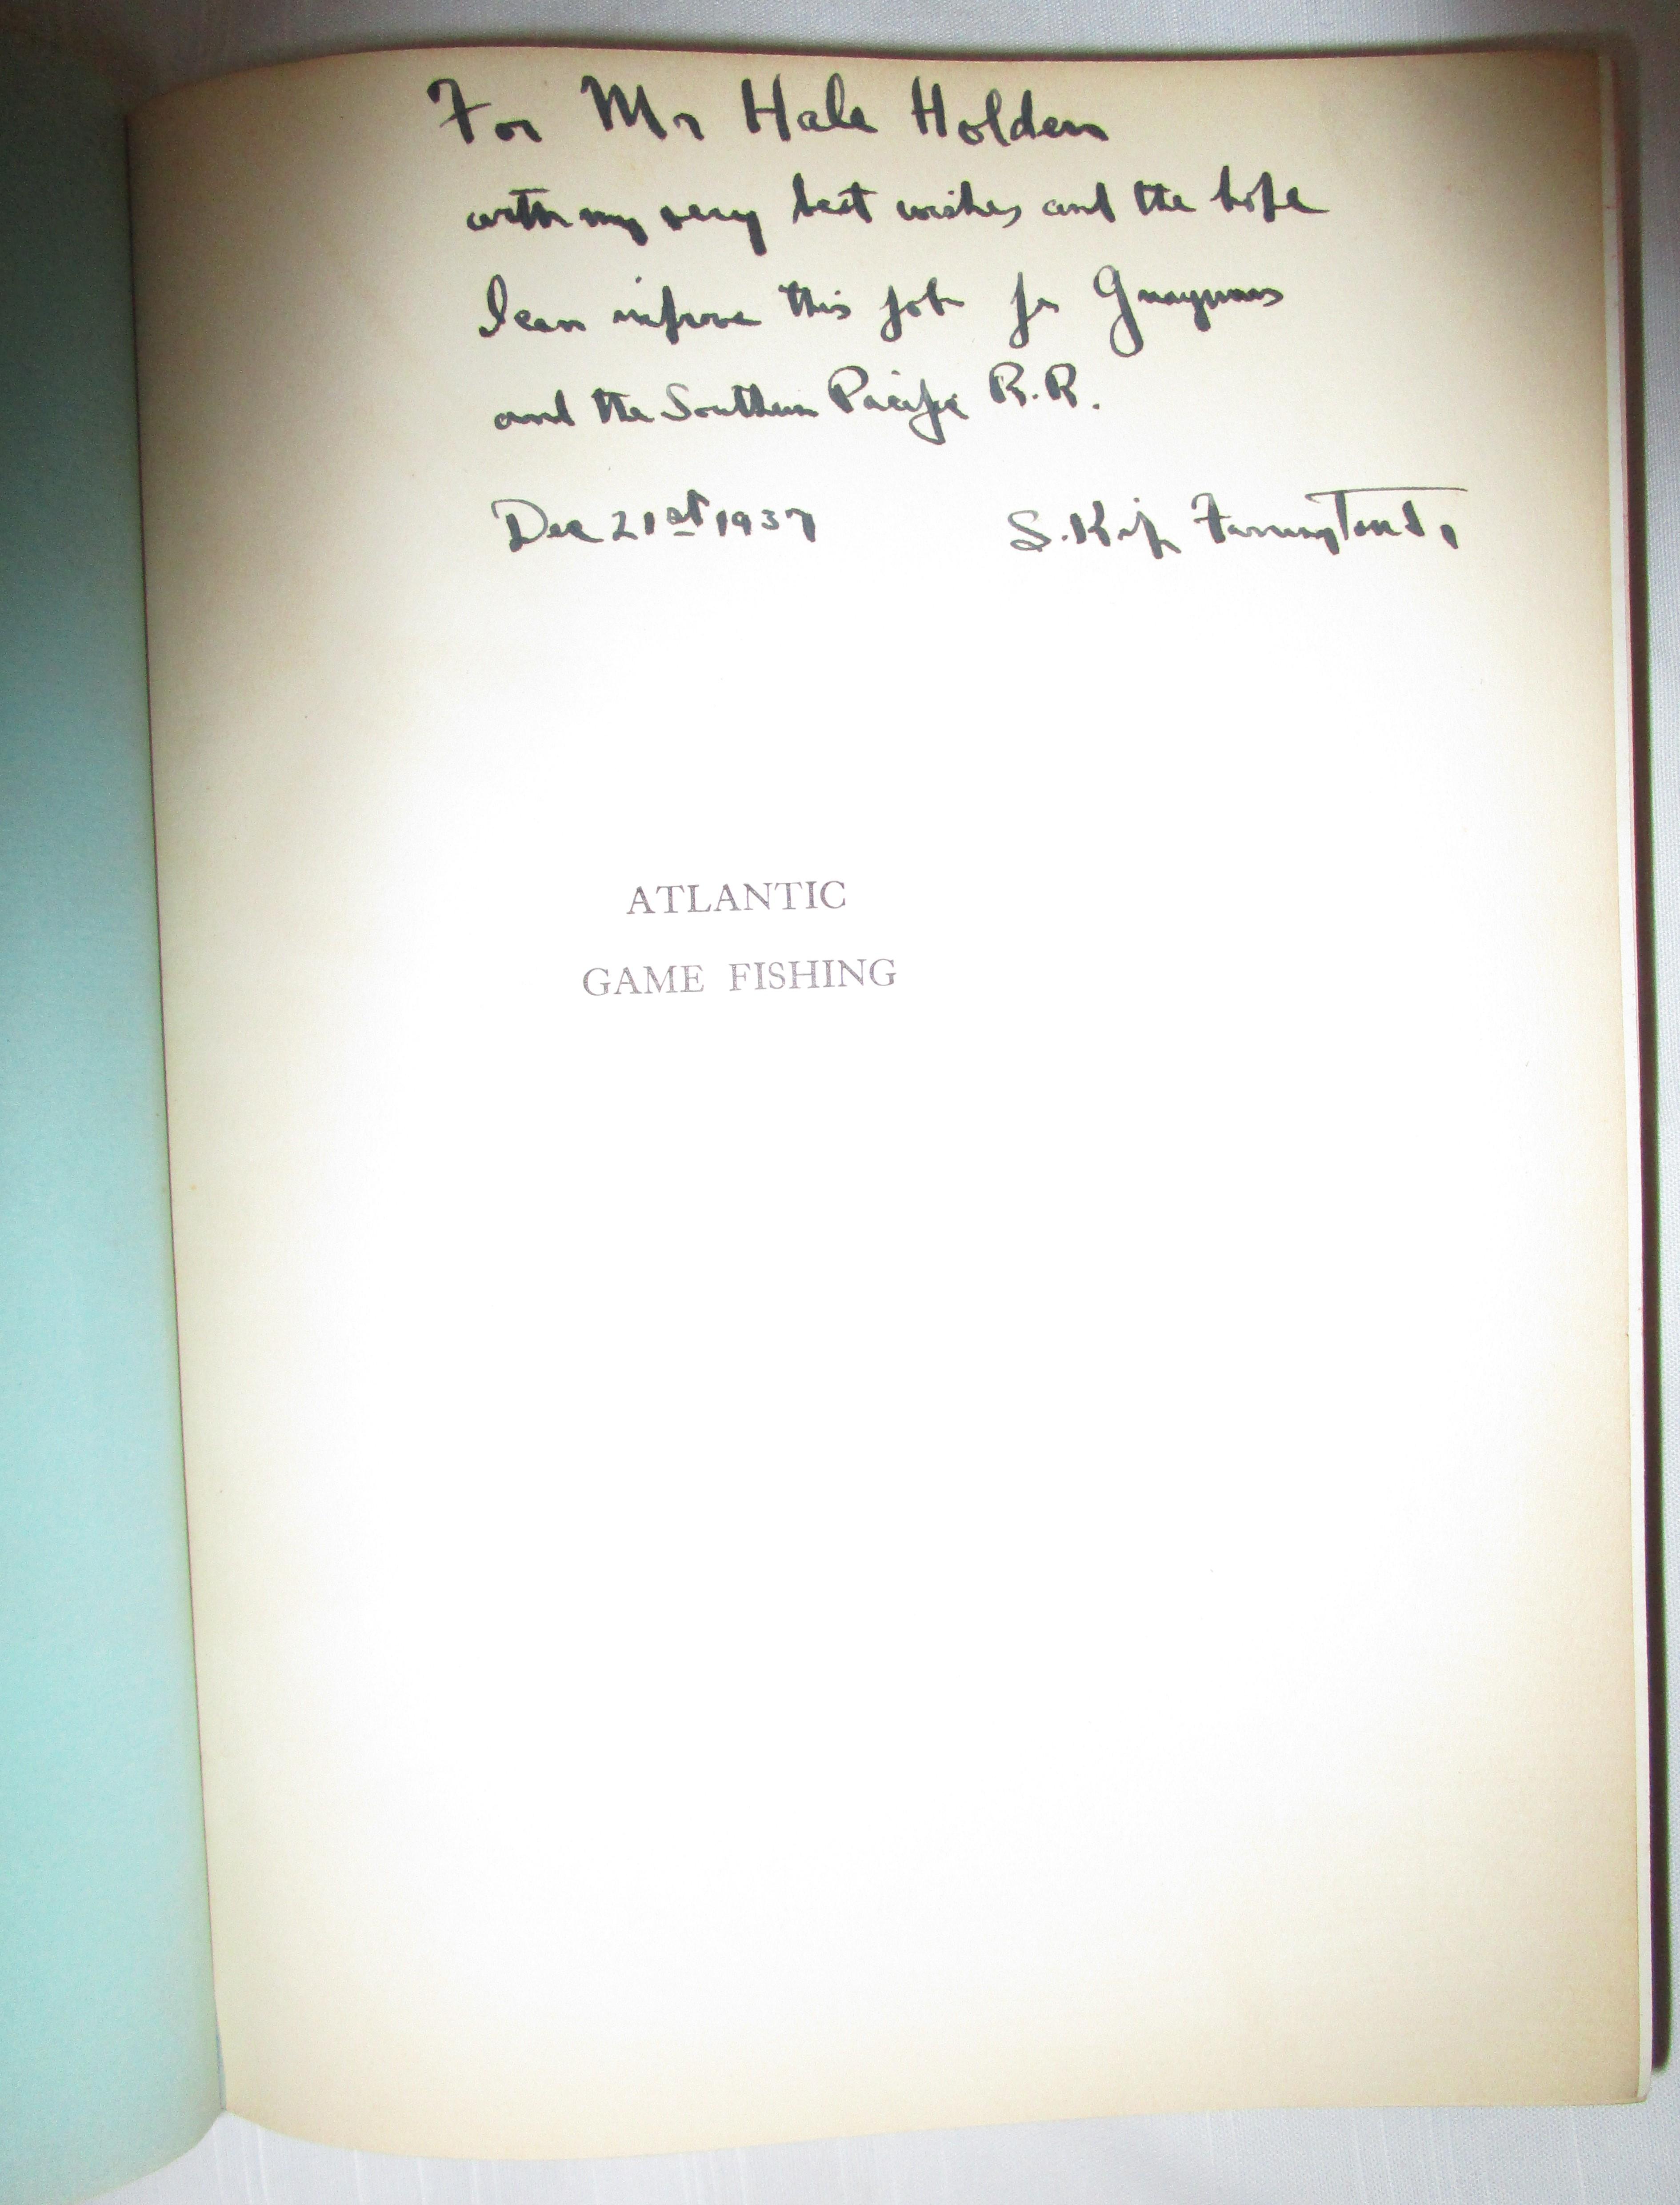 For Mr Hale Holden
with my very best wishes and the hope
I can improve this job for Guaymas
and the Southern Pacific R.R.
Dec 21st 1937 S. Kip Farrington Jr
ATLANTIC
GAME FISHING